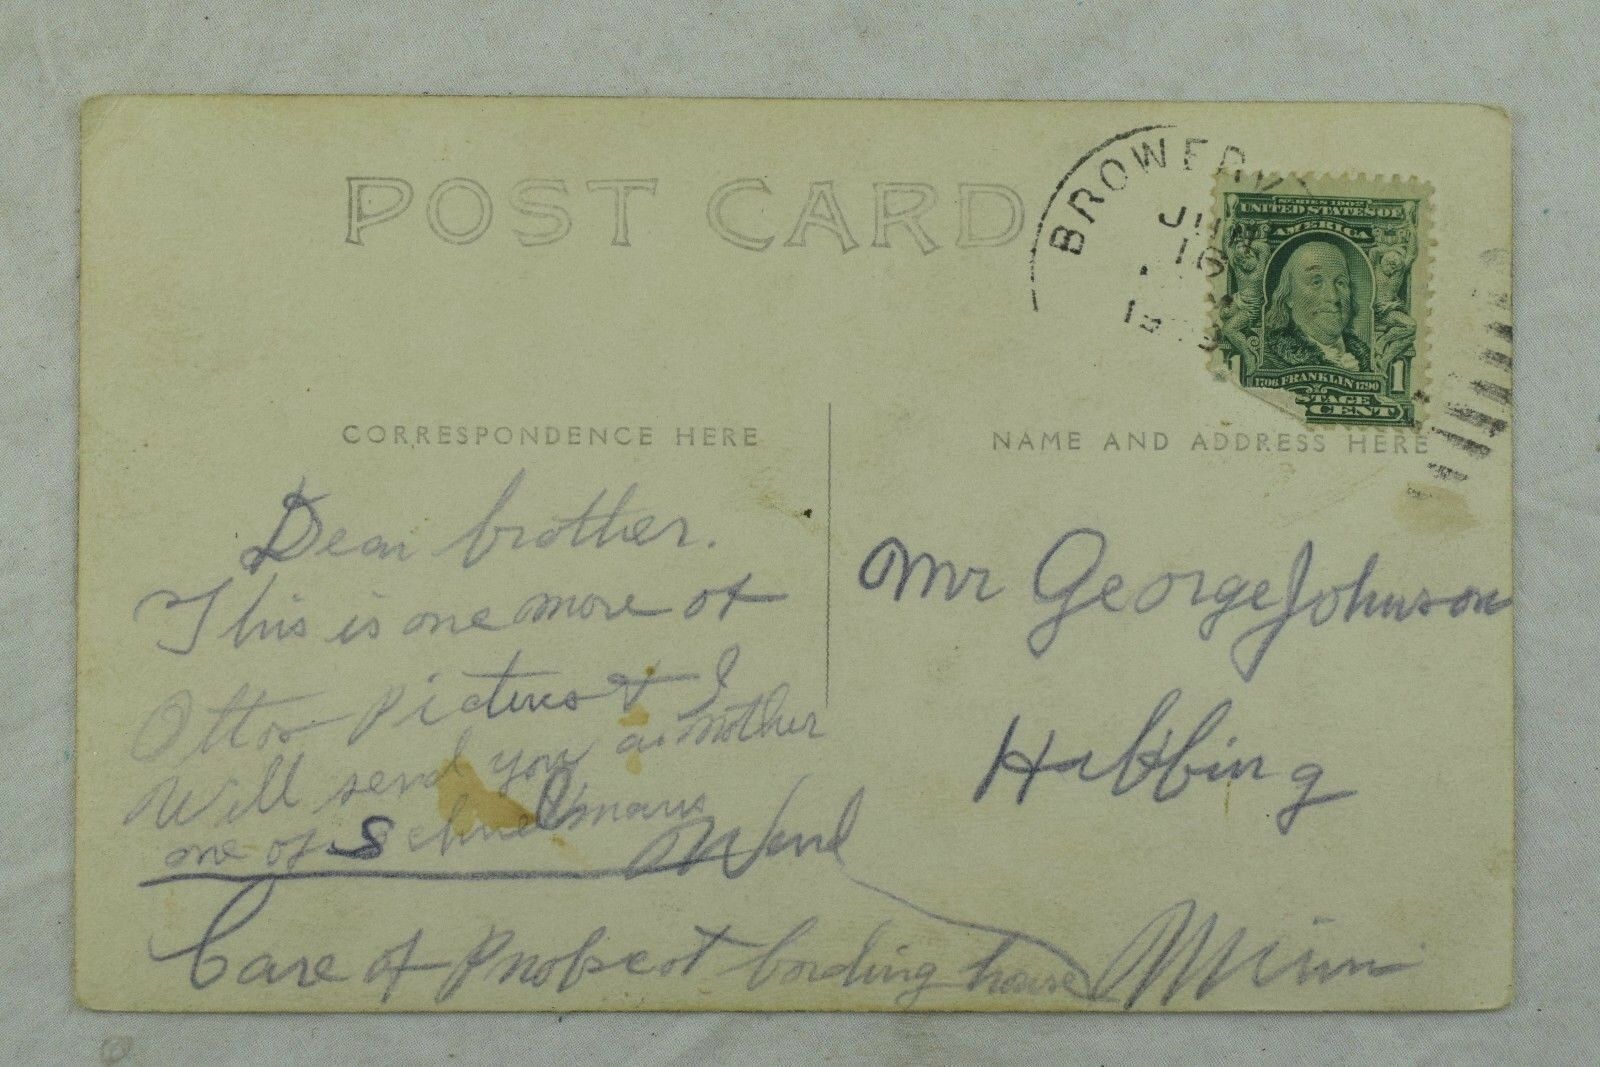 POST CARD
BROWERV
JUN
10
SERIES 1902
UNITED STATES OF
AMERICA
1 1
1706 FRANKLIN 1790
STAGE
CENT
CORRESPONDENCE HERE
NAME AND ADDRESS HERE
Dear brother.
This is one more of
Ottos Pictures & I
Will send you a nother
one of
Mr George Johnson
Hibbing
Minn
Care of bording house